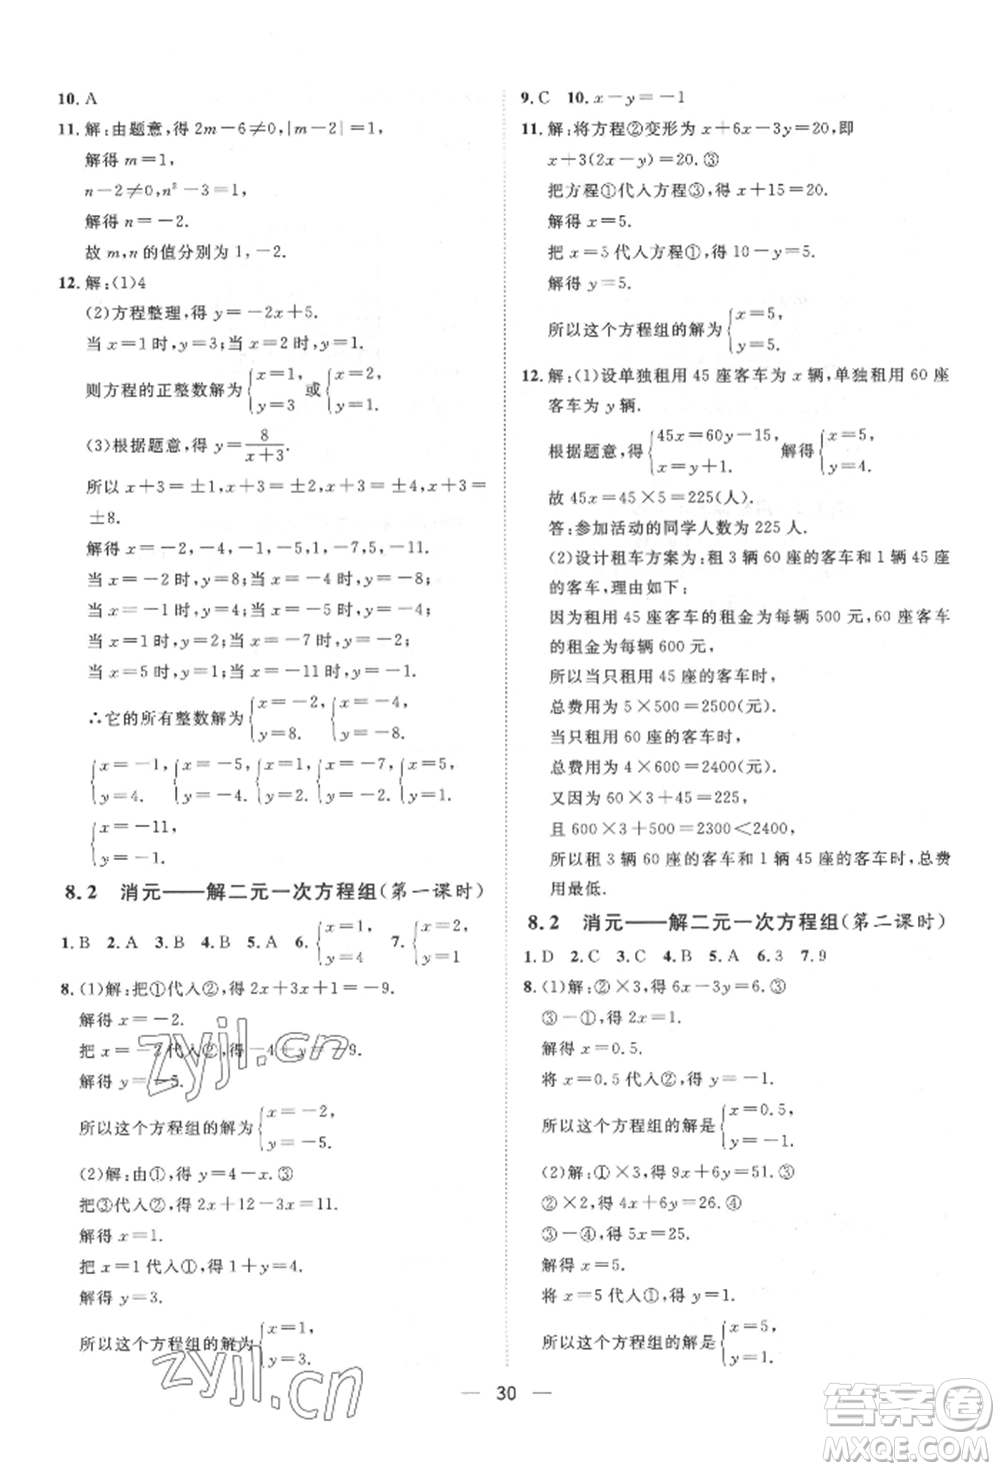 10. A
11. 解:由题意,得 2m－6≠0,|m－2|＝1,
解得 m＝1,
n－2≠0,n²－3＝1,
解得 n＝－2.
故 m,n 的值分别为 1,－2.
12. 解:(1)4
(2)方程整理,得 y＝－2x＋5.
当 x＝1 时,y＝3;当 x＝2 时,y＝1.
则方程的正整数解为{x＝1, y＝3 或{x＝2, y＝1.
(3)根据题意,得 y＝8/(x＋3).
所以 x＋3＝±1,x＋3＝±2,x＋3＝±4,x＋3＝
±8.
解得 x＝－2,－4,－1,－5,1,－7,5,－11.
当 x＝－2 时,y＝8;当 x＝－4 时,y＝－8;
当 x＝－1 时,y＝4;当 x＝－5 时,y＝－4;
当 x＝1 时,y＝2;当 x＝－7 时,y＝－2;
当 x＝5 时,y＝1;当 x＝－11 时,y＝－1.
∴它的所有整数解为{x＝－2, y＝8. {x＝－4, y＝－8.
{x＝－1, y＝4. {x＝－5, y＝－4. {x＝1, y＝2. {x＝－7, y＝－2. {x＝5, y＝1.
{x＝－11, y＝－1.
8.2 消元——解二元一次方程组(第一课时)
1. B 2. A 3. B 4. B 5. A 6. {x＝1, y＝4 7. {x＝1, y＝2
8. (1)解:把①代入②,得 2x＋3x＋1＝－9.
解得 x＝－2.
把 x＝－2 代入②,得－4＋y＝－9.
解得 y＝－5.
所以这个方程组的解为{x＝－2, y＝－5.
(2)解:由①,得 y＝4－x.③
把③代入②,得 2x＋12－3x＝11.
解得 x＝1.
把 x＝1 代入①,得 1＋y＝4.
解得 y＝3.
所以这个方程组的解为{x＝1, y＝3.
9. C 10. x－y＝－1
11. 解:将方程②变形为 x＋6x－3y＝20,即
x＋3(2x－y)＝20.③
把方程①代人方程③,得 x＋15＝20.
解得 x＝5.
把 x＝5 代人方程①,得 10－y＝5.
解得 y＝5.
所以这个方程组的解为{x＝5, y＝5.
12. 解:(1)设单独租用 45 座客车为 x 辆,单独租用 60 座
客车为 y 辆.
根据题意,得{45x＝60y－15, x＝y＋1. 解得{x＝5, y＝4.
故 45x＝45×5＝225(人).
答:参加活动的同学人数为 225 人.
(2)设计租车方案为:租 3 辆 60 座的客车和 1 辆 45 座
的客车,理由如下:
因为租用 45 座客车的租金为每辆 500 元,60 座客车
的租金为每辆 600 元,
所以当只租用 45 座的客车时,
总费用为 5×500＝2500(元).
当只租用 60 座的客车时,
总费用为 4×600＝2400(元).
又因为 60×3＋45＝225,
且 600×3＋500＝2300＜2400,
所以租 3 辆 60 座的客车和 1 辆 45 座的客车时,总费
用最低.
8.2 消元——解二元一次方程组(第二课时)
1. D 2. C 3. C 4. B 5. A 6. 3 7. 9
8. (1)解:②×3,得 6x－3y＝6.③
③－①,得 2x＝1.
解得 x＝0.5.
将 x＝0.5 代人②,得 y＝－1.
所以这个方程组的解是{x＝0.5, y＝－1.
(2)解:①×3,得 9x＋6y＝51.③
②×2,得 4x＋6y＝26.④
③－④,得 5x＝25.
解得 x＝5.
将 x＝5 代人①,得 y＝1.
所以这个方程组的解是{x＝5, y＝1.
— 30 —
zyjl.cn
zyjl.cn
答案圈
MXQE.COM